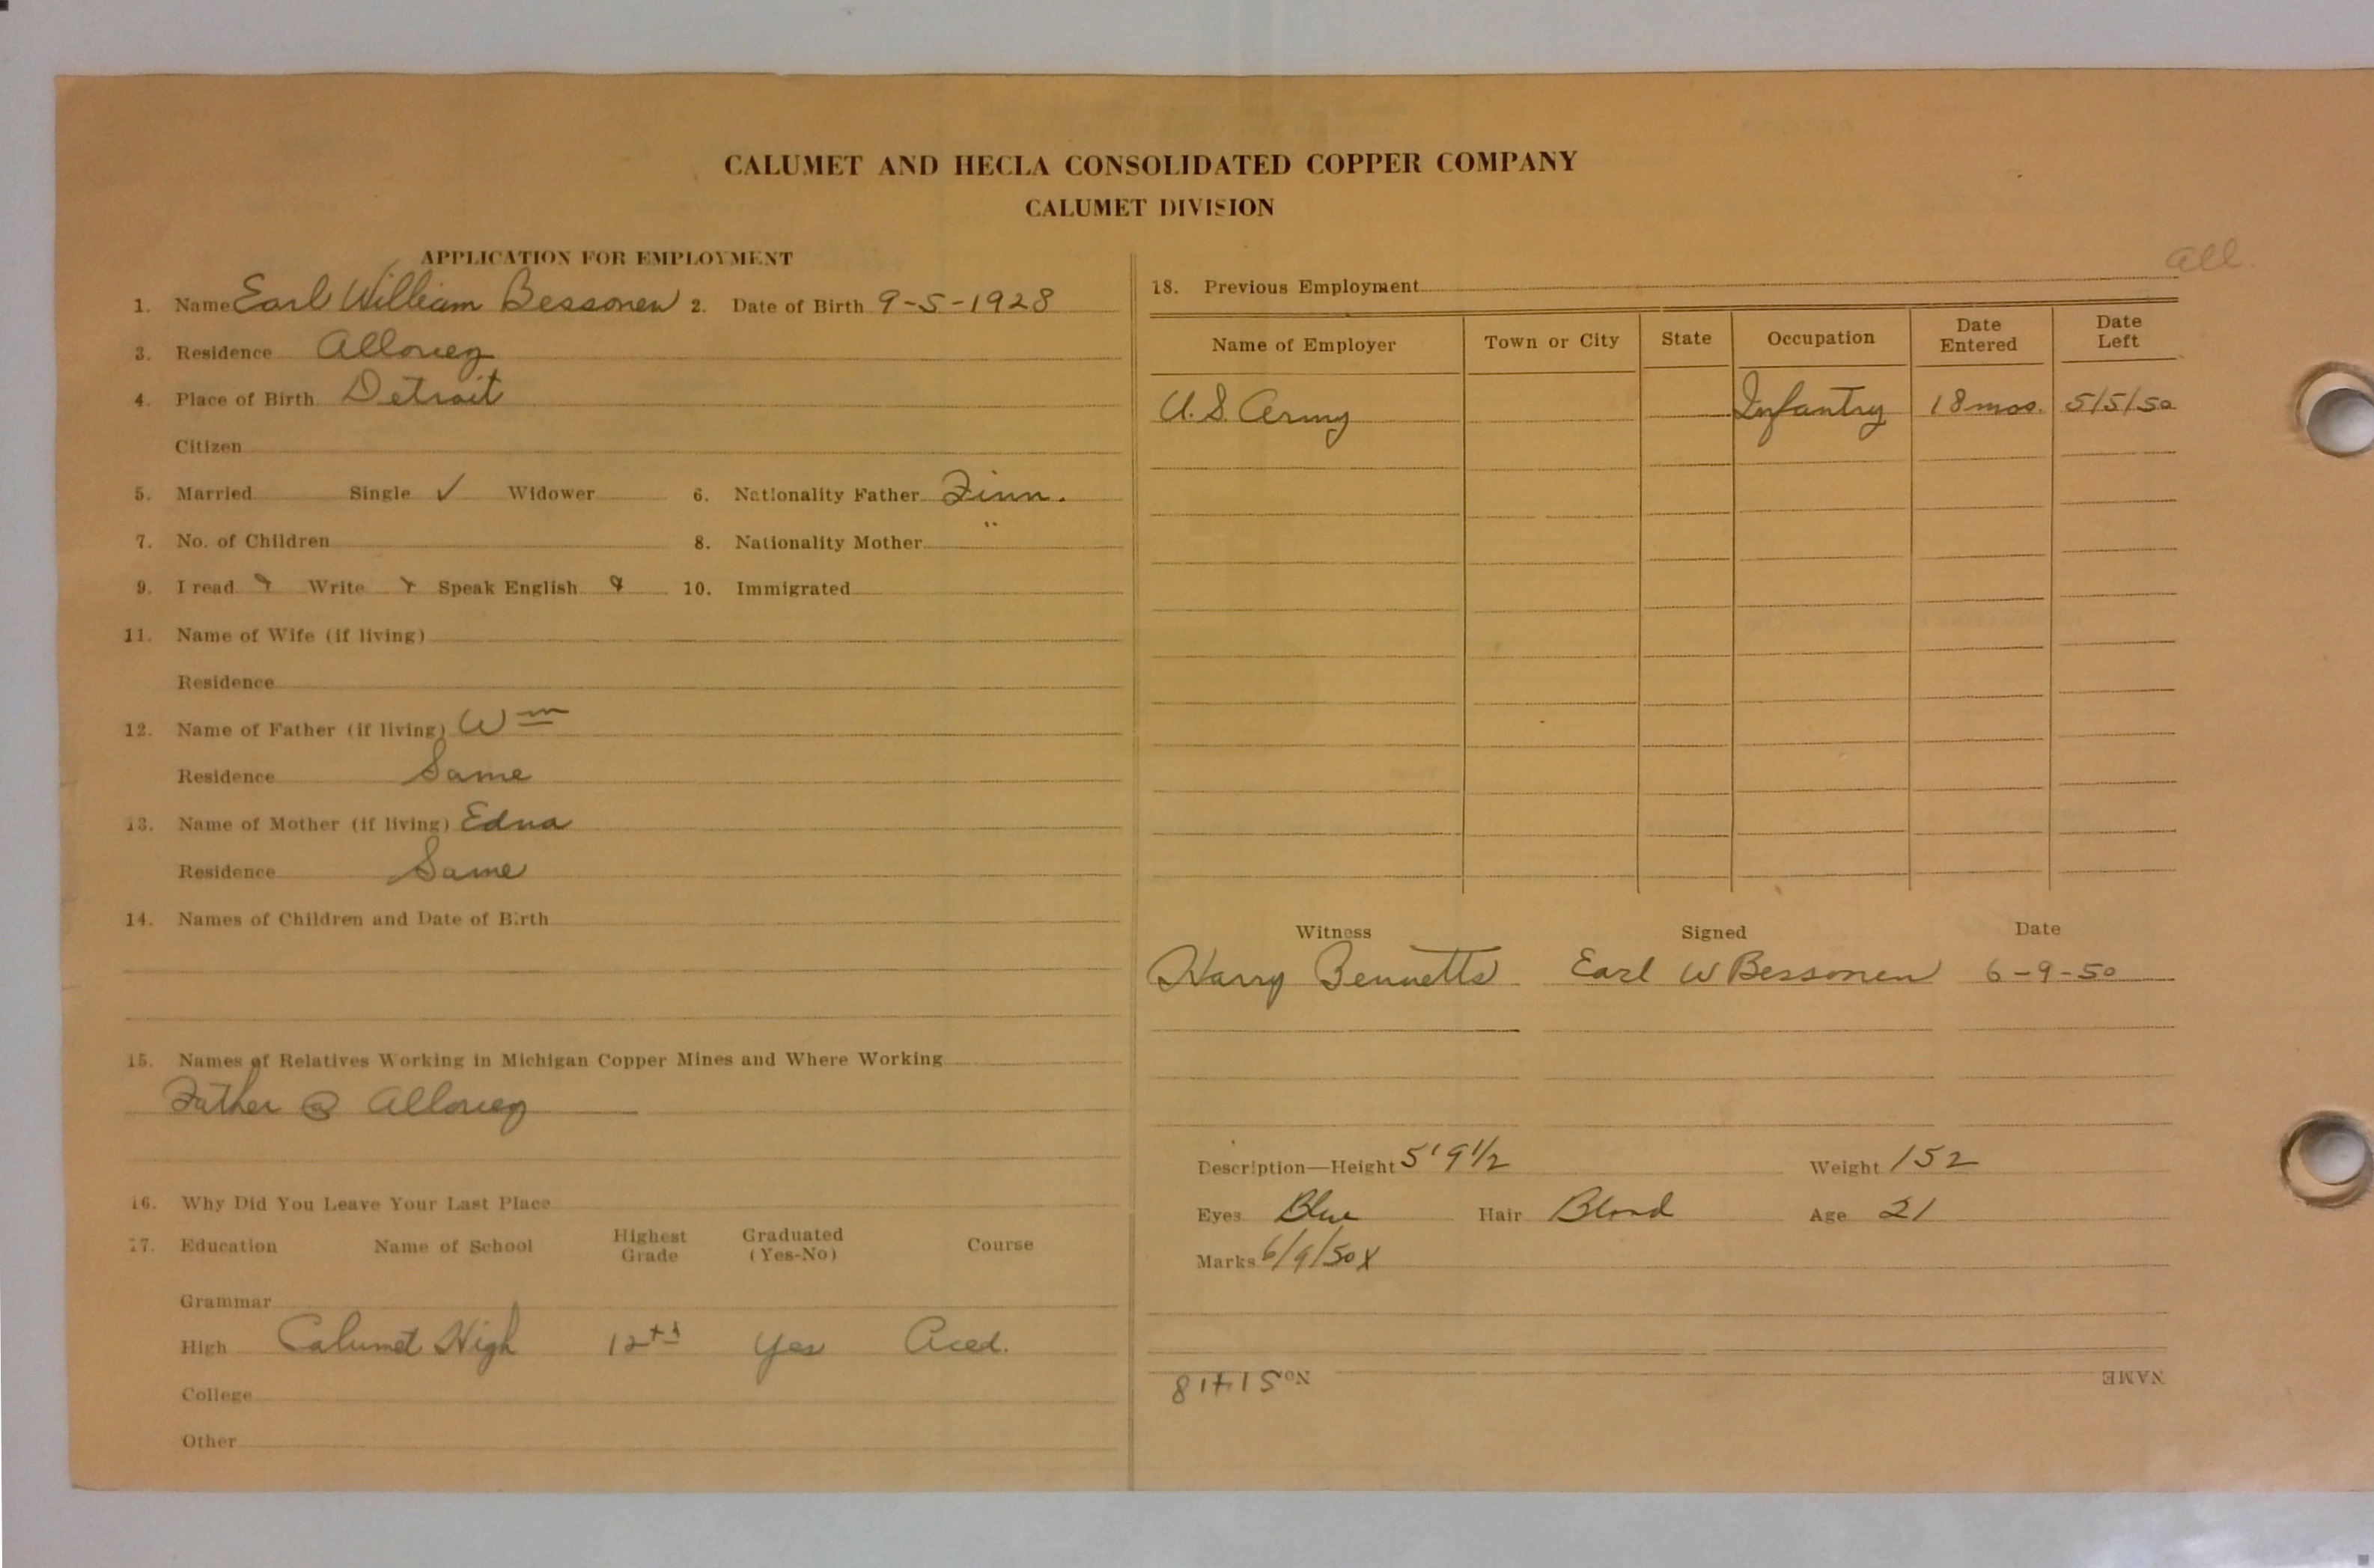 CALUMET AND HECLA CONSOLIDATED COPPER COMPANY
CALUMET DIVISION
APPLICATION FOR EMPLOYMENT
1. Name Earl William Bessonen 2. Date of Birth 9-5-1928
3. Residence Allouez
4. Place of Birth Detroit
Citizen
5. Married Single ✓ Widower 6. Nationality Father Finn.
7. No. of Children 8. Nationality Mother "
9. I read Write Speak English 10. Immigrated
11. Name of Wife (if living)
Residence
12. Name of Father (if living) Wm
Residence Same
13. Name of Mother (if living) Edna
Residence Same
14. Names of Children and Date of Birth
15. Names of Relatives Working in Michigan Copper Mines and Where Working
Father @ Allouez
16. Why Did You Leave Your Last Place
17. Education Name of School Highest Grade Graduated (Yes-No) Course
Grammar
High Calumet High 12th Yes Acad.
College
Other
all.
18. Previous Employment
Name of Employer Town or City State Occupation Date Entered Date Left
U.S. Army Infantry 18 mos. 5/5/50
Witness Signed Date
Harry Bennetts Earl W Bessonen 6-9-50
Description—Height 5'9 1/2 Weight 152
Eyes Blue Hair Blond Age 21
Marks 6/9/50 X
NAME No